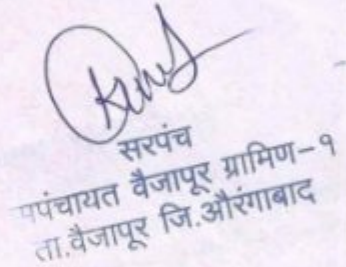 सरपंच
पपंचायत वैजापूर ग्रामिण-१
ता.वैजापूर जि.औरंगाबाद